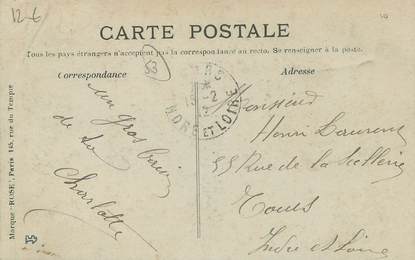 12-6
CARTE POSTALE
Tous les pays étrangers n'acceptent pas la correspondance au recto. Se renseigner à la poste.
Correspondance
Adresse
53
un gros baiser
de ta
Charlotte
Monsieur
Henri Laurent
55 Rue de la Scellerie
Tours
Indre et Loire
ET LOIRE
Marque "ROSE", Paris 145, rue du Temple